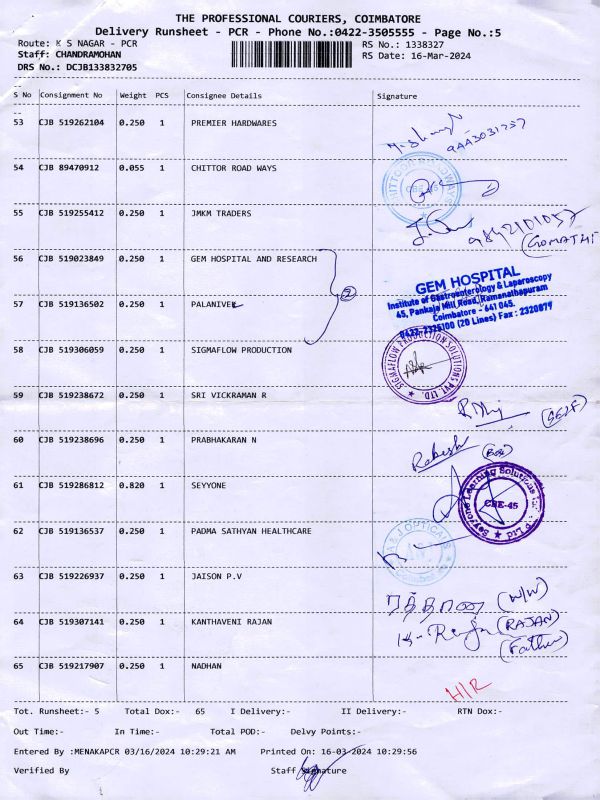 THE PROFESSIONAL COURIERS, COIMBATORE
Delivery Runsheet - PCR - Phone No.:0422-3505555 - Page No.:5
Route: K S NAGAR - PCR
RS No.: 1338327
Staff: CHANDRAMOHAN
RS Date: 16-Mar-2024
DRS No.: DCJB133832705
S No Consignment No Weight PCS Consignee Details Signature
53 CJB 519262104 0.250 1 PREMIER HARDWARES
54 CJB 89470912 0.055 1 CHITTOR ROAD WAYS
55 CJB 519255412 0.250 1 JMKM TRADERS
9842101057
(GOMATHI
56 CJB 519023849 0.250 1 GEM HOSPITAL AND RESEARCH
2
GEM HOSPITAL
Institute of Gastroenterology & Laparoscopy
45, Pankaja Mill Road, Ramanathapuram
Coimbatore - 641 045.
0422-2325100 (20 Lines) Fax : 2320879
57 CJB 519136502 0.250 1 PALANIVEL
58 CJB 519306059 0.250 1 SIGMAFLOW PRODUCTION
SIGMAFLOW PRODUCTION SOLUTIONS PVT. LTD.
59 CJB 519238672 0.250 1 SRI VICKRAMAN R
(SELF)
60 CJB 519238696 0.250 1 PRABHAKARAN N
Rakesh
61 CJB 519286812 0.820 1 SEYYONE
Seyyone Learning Solutions
CBE-45
62 CJB 519136537 0.250 1 PADMA SATHYAN HEALTHCARE
63 CJB 519226937 0.250 1 JAISON P.V
(W/W)
64 CJB 519307141 0.250 1 KANTHAVENI RAJAN
(RAJAN)
(Father)
65 CJB 519217907 0.250 1 NADHAN
H/R
Tot. Runsheet:- 5 Total Dox:- 65 I Delivery:- II Delivery:- RTN Dox:-
Out Time:- In Time:- Total POD:- Delvy Points:-
Entered By :MENAKAPCR 03/16/2024 10:29:21 AM Printed On: 16-03-2024 10:29:56
Verified By Staff Signature